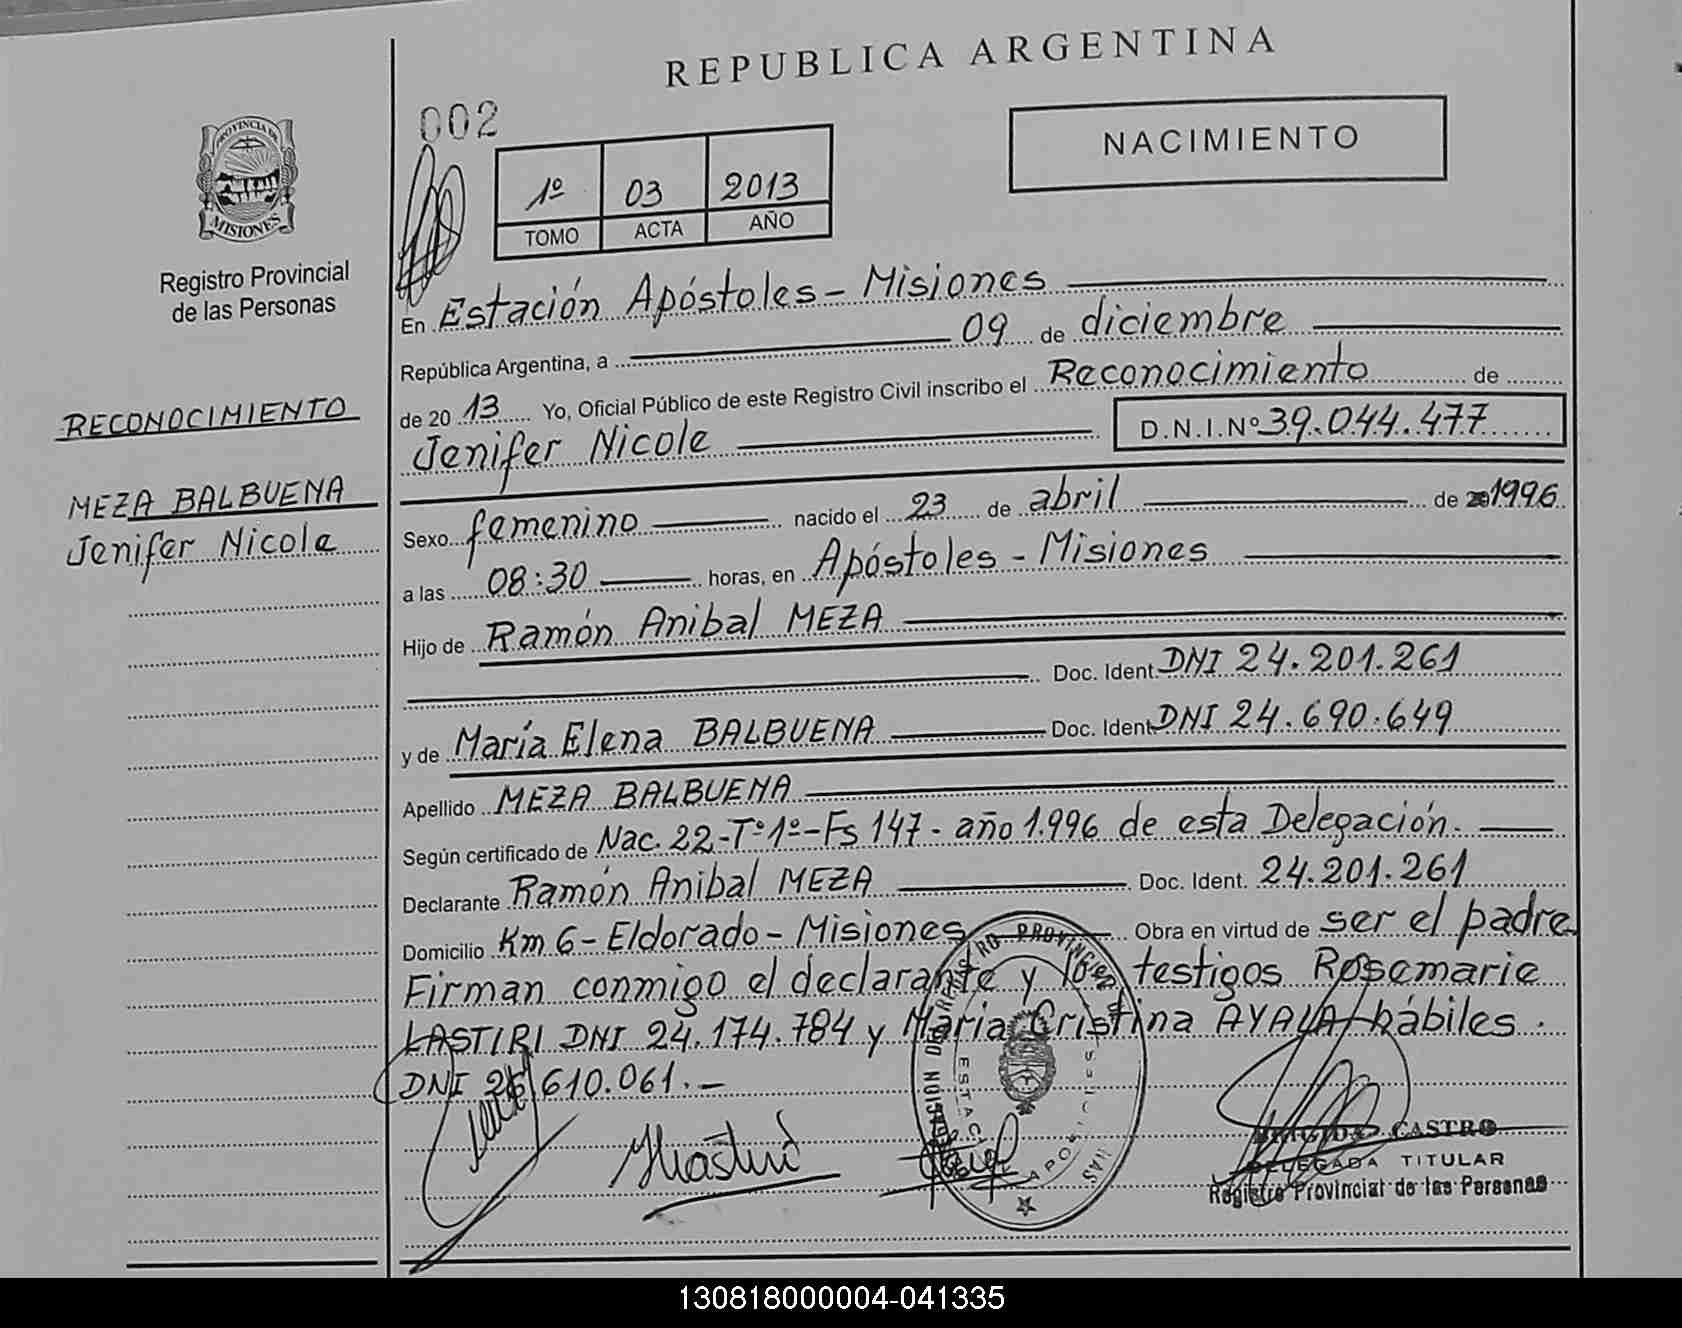 REPUBLICA ARGENTINA
002
NACIMIENTO
PROVINCIA DE
MISIONES
Registro Provincial
de las Personas
1º 03 2013
TOMO ACTA AÑO
RECONOCIMIENTO
MEZA BALBUENA
Jenifer Nicole
En Estación Apóstoles - Misiones
República Argentina, a 09 de diciembre
de 20 13 Yo, Oficial Público de este Registro Civil inscribo el Reconocimiento de
Jenifer Nicole D.N.I.Nº 39.044.477
Sexo femenino nacido el 23 de abril de 1996
a las 08:30 horas, en Apóstoles - Misiones
Hijo de Ramón Anibal MEZA
Doc. Ident. DNI 24.201.261
y de María Elena BALBUENA Doc. Ident. DNI 24.690.649
Apellido MEZA BALBUENA
Según certificado de Nac. 22-Tº1º-Fs 147- año 1.996 de esta Delegación.
Declarante Ramón Anibal MEZA Doc. Ident. 24.201.261
Domicilio Km 6 - Eldorado - Misiones Obra en virtud de ser el padre
Firman conmigo el declarante y los testigos Rosemarie
LASTIRI DNI 24.174.784 y María Cristina AYALA hábiles.
DNI 26.610.061.-
BRIGIDA CASTRO
DELEGADA TITULAR
Registro Provincial de las Personas
130818000004-041335